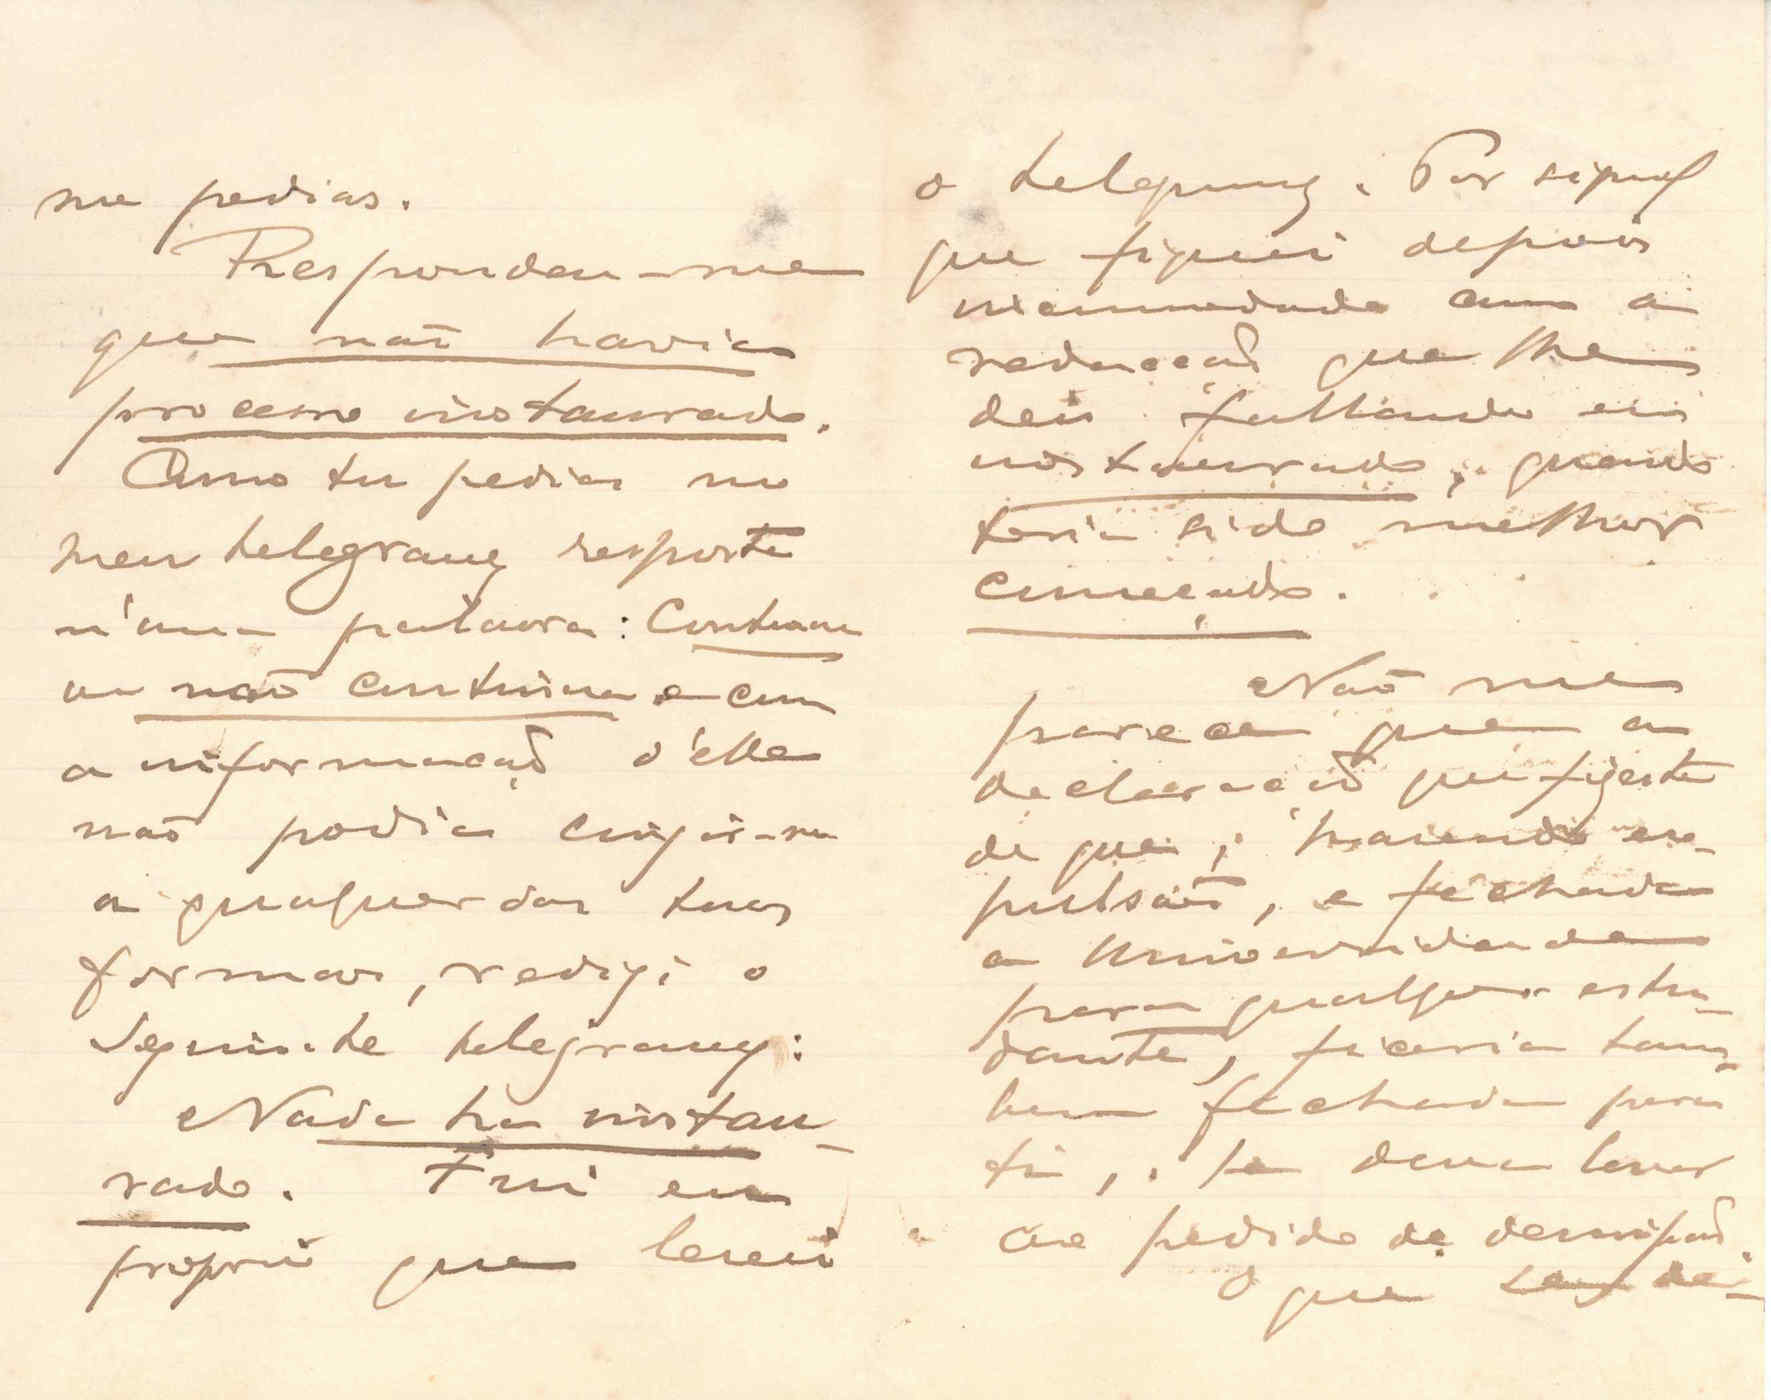 me pedias.
Respondeu-me
que não havia
processo instaurado.
Como tu pedias no
meu telegrama resposta
n'uma palavra: Continua
ou não continua e com
a informação d'elle
não podia cingir-me
a qualquer das tuas
formas, redigi o
seguinte telegrama:
Nada ha instau-
rado. Fui eu
proprio que levei
o telegrama. Por signal
que fiquei depois
incommodado com a
redacção que lhe
dei fallando em
instaurado, quando
teria sido melhor
começado.
Não me
parece que a
declaração que fizeste
de que, havendo ex-
pulsões, e fechada
a Universidade
para qualquer estu-
dante, ficaria tam-
bem fechada para
ti, te deva levar
ao pedido de demissão.
O que